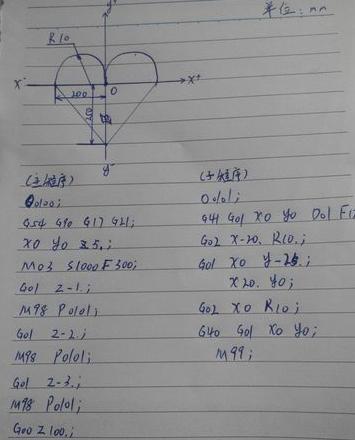 单位:mm
y+
R10
X-
0
X+
200
y-
(主程序)
O0100;
G54 G90 G17 G21;
X0 Y0 Z5.;
M03 S1000 F300;
G01 Z-1.;
M98 P0101;
G01 Z-2.;
M98 P0101;
G01 Z-3.;
M98 P0101;
G00 Z100.;
(子程序)
O0101;
G41 G01 X0 Y0 D01 F1
G02 X-20. R10.;
G01 X0 Y-25.;
X20. Y0;
G02 X0 R10;
G40 G01 X0 Y0;
M99;